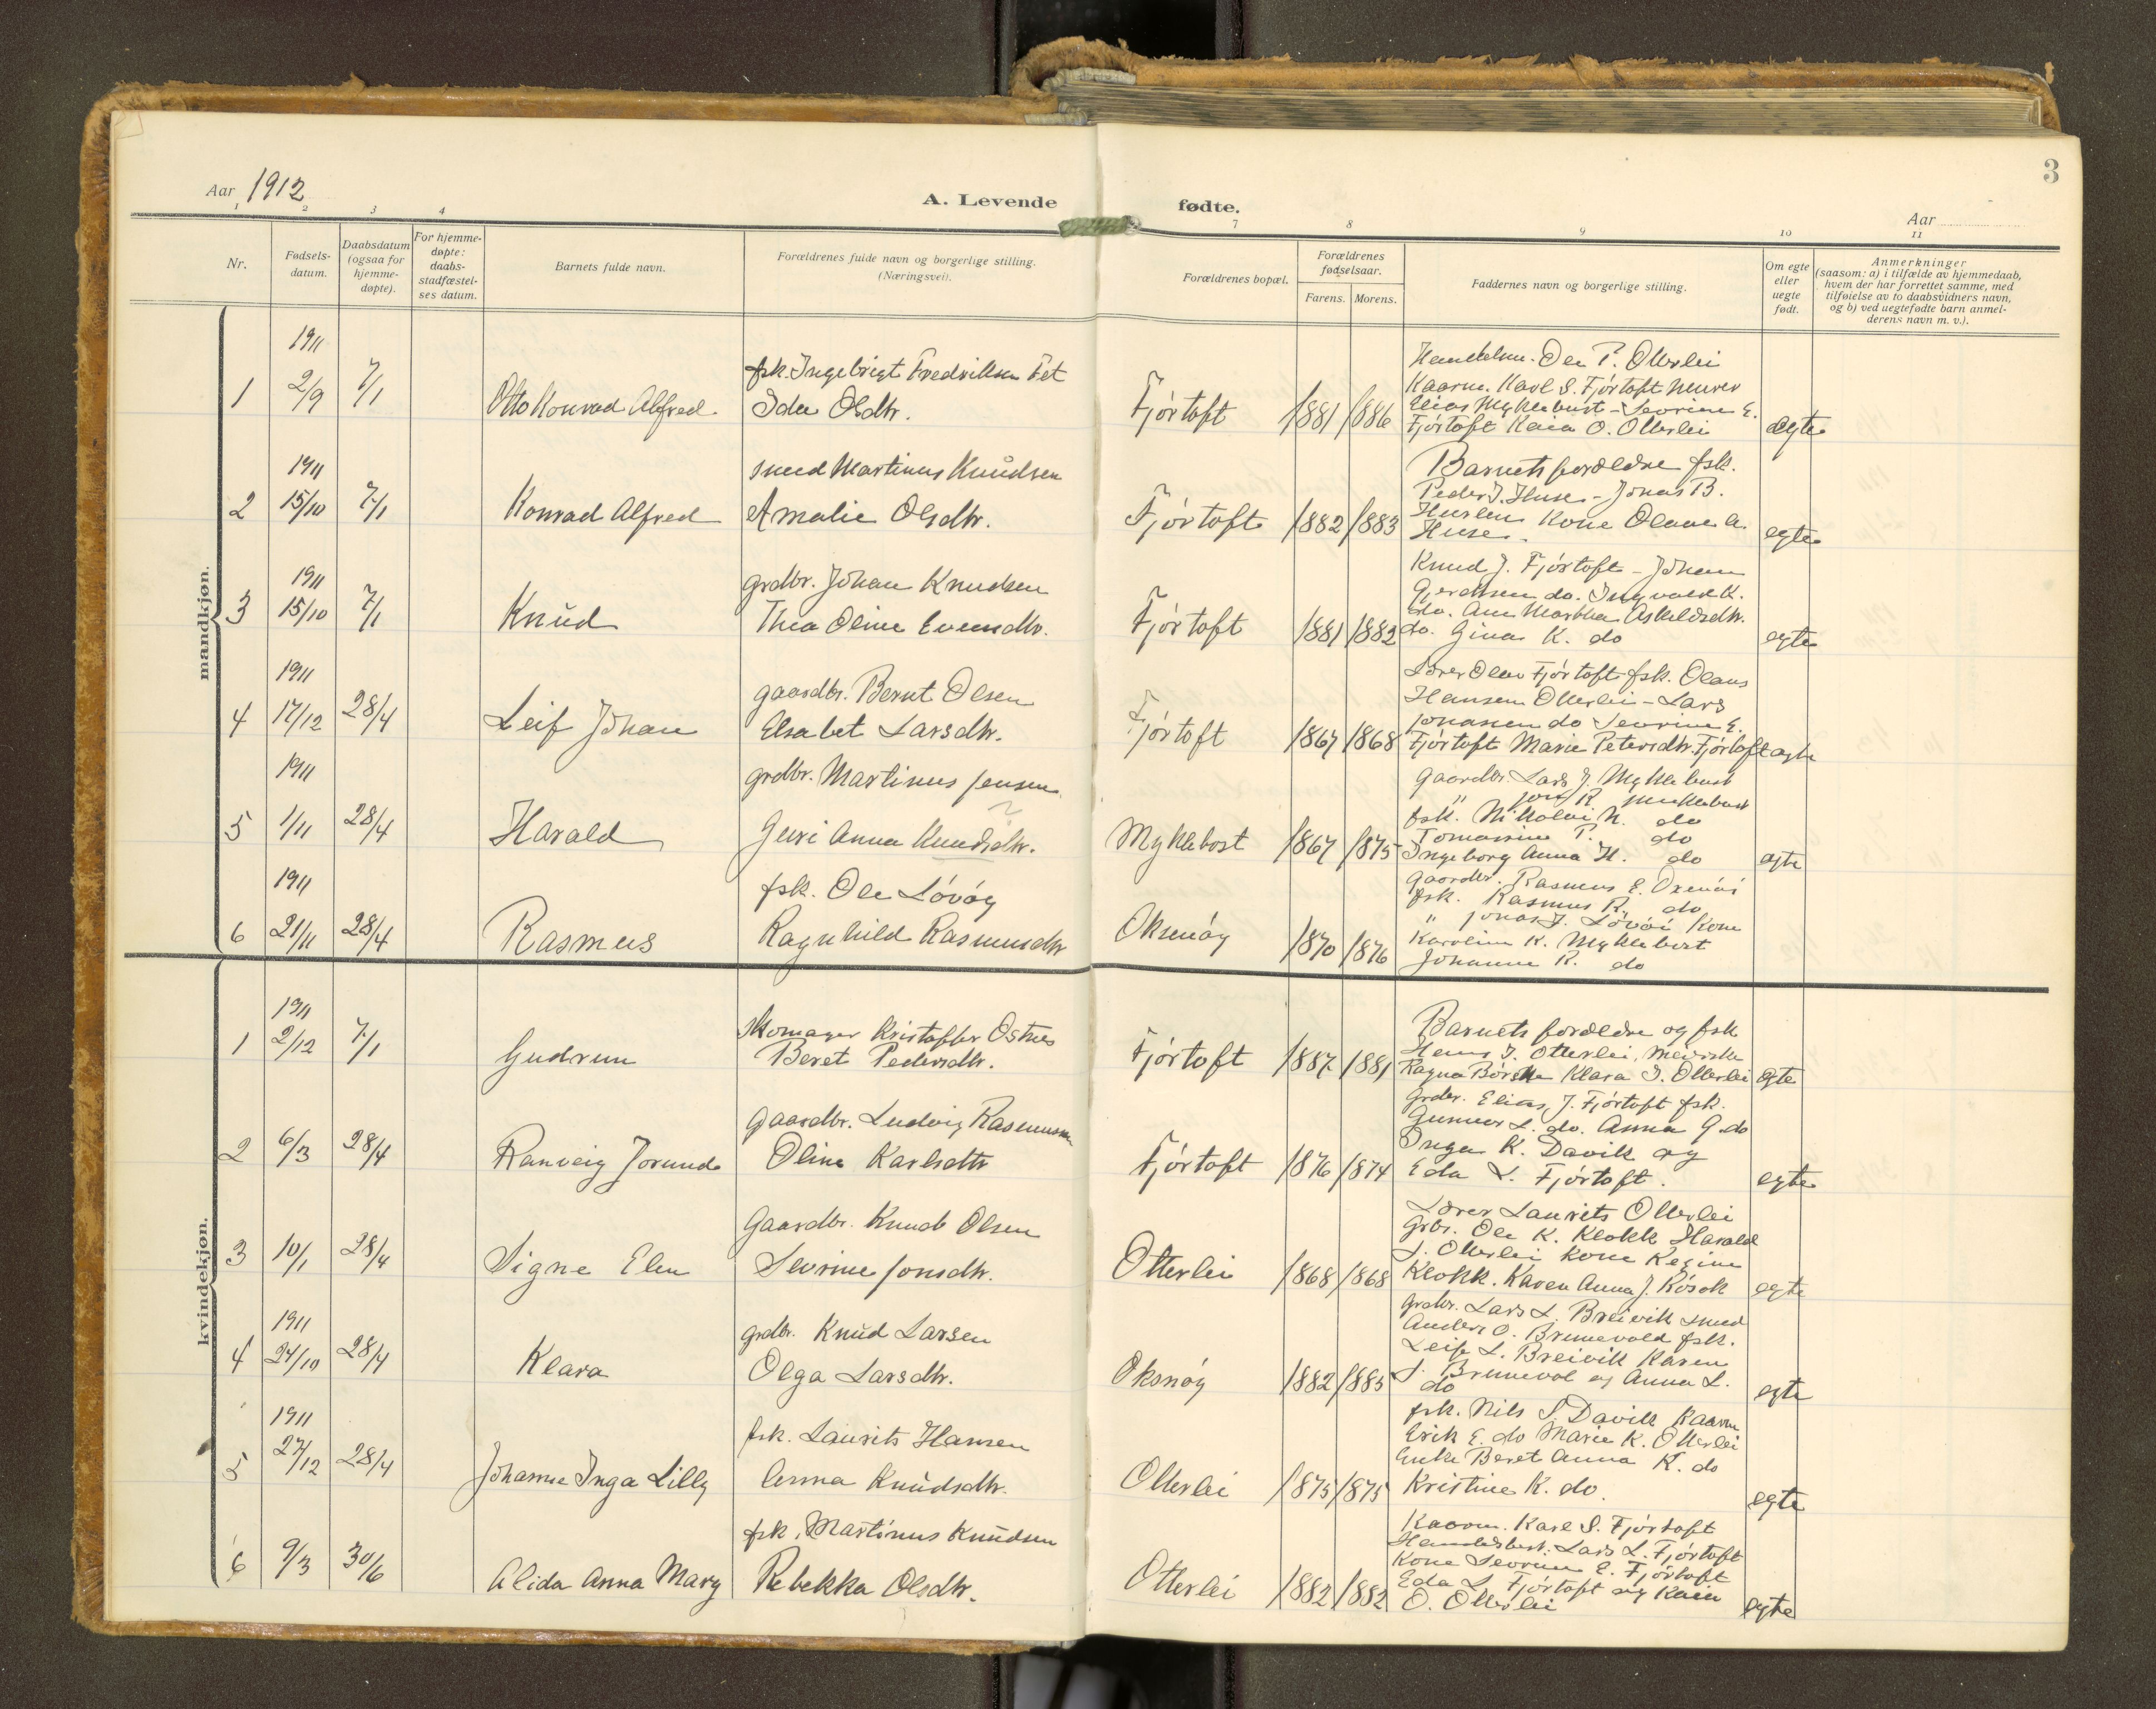 3
Aar 1912
A. Levende fødte.
Aar
1 2 3 4 7 8 9 10 11
Nr.
Fødsels-
datum.
Daabsdatum
(ogsaa for
hjemme-
døpte).
For hjemme-
døpte:
daabs-
stadfæstel-
ses datum.
Barnets fulde navn.
Forældrenes fulde navn og borgerlige stilling.
(Næringsvei).
Forældrenes bopæl.
Forældrenes
fødselsaar.
Farens. Morens.
Faddernes navn og borgerlige stilling.
Om egte
eller
uegte
født.
Anmerkninger
(saasom: a) i tilfælde av hjemmedaab,
hvem der har forrettet samme, med
tilføielse av to daabsvidners navn,
og b) ved uegtefødte barn anmel-
derens navn m. v.).
mandkjøn.
1911
1 2/9 7/1 Otto Konrad Alfred
fsk. Ingebrigt Fredriksen Fet
Ida Olsdtr.
Fjørtoft 1881 1886
Handelsm. Ole P. Otterlei
Kaarm. Karl S. Fjørtoft murer
Elias Myklebust - Sevrine E.
Fjørtoft Kaia O. Otterlei
egte
1911
2 15/10 7/1 Konrad Alfred
smed Martinus Knudsen
Amalie Olsdtr.
Fjørtoft 1882 1883
Barnets forældre fsk.
Peder J. Huse - Jonas B.
Huse Kone Olave A.
Huse.
egte
1911
3 15/10 7/1 Knud
grdbr. Johan Knudsen
Thea Oline Evensdtr.
Fjørtoft 1881 1882
Knud J. Fjørtoft - Johan
Gjerdsen do. Ingvald K.
do. Ane Martha Askildsdtr.
do. Gina K. do
egte
1911
4 17/12 28/4 Leif Johan
gaardbr. Bernt Olsen
Elsabet Larsdtr.
Fjørtoft 1867 1868
Lærer Olav Fjørtoft fsk. Olaus
Hansen Otterlei - Lars
Jonassen do Sevrine E.
Fjørtoft Marie Petersdtr. Fjørtoft
egte
1911
5 1/11 28/4 Harald
grdbr. Martinus Jensen
Guri Anna Knudsdtr.
Myklebost 1867 1875
gaardbr. Lars J. Myklebust
" R. Myklebust
fsk. Nikolai N. do
Tomasine P. do
Ingeborg Anna H. do
egte
1911
6 21/11 28/4 Rasmus
fsk. Ole Løvøy
Ragnhild Rasmusdtr
Oksnøy 1870 1876
gaardbr. Rasmus E. Oxenøi
fsk. Rasmus R. do
" Jonas J. Løvøi Kone
Karoline K. Myklebost
Johanne R. do
kvindekjøn.
1911
1 2/12 7/1 Gudrun
skomager Kristoffer Ostnes
Beret Pedersdtr.
Fjørtoft 1887 1881
Barnets forældre og fsk
Hans J. Otterlei,
Ragna Klara J. Otterlei
egte
2 6/3 28/4 Ranveig Jorunde
gaardbr. Ludvig Rasmussen
Oline Karlsdtr
Fjørtoft 1876 1874
Grdbr. Elias J. Fjørtoft fsk.
Gunnar L. do. Anna G. do
Inga K. Davik og
Eda L. Fjørtoft.
egte
3 10/1 28/4 Signe Elen
Gaardbr. Knud Olsen
Sevrine Jonsdtr.
Otterlei 1868 1868
Lærer Laurits Otterlei
Grbr. Ole K. Klokk Harald
S. Otterlei Kone Regine
Klokk. Karen Anna J. Røsok
egte
1911
4 24/10 28/4 Klara
grdbr. Knud Larsen
Olga Larsdtr.
Oksnøy 1882 1885
grdbr. Lars L. Breivik smed
Anders O. Brunevold fsk.
Leif L. Breivik Karen
S. Brunevol og Anna L.
do
egte
1911
5 27/12 28/4 Johanne Inga Lilly
fsk. Laurits Hansen
Anna Knudsdtr.
Otterlei 1875 1875
fsk. Nils S Davik Kaarm
Erik E. do Marie K. Otterlei
Enke Beret Anna K. do
Kristine K. do.
egte
6 9/3 30/6 Alida Anna Mary
fsk. Martinus Knudsen
Rebekka Olsdtr.
Otterlei 1882 1882
Kaarm. Karl S. Fjørtoft
Handelsbest. Lars L. Fjørtoft
Kone Sevrine E. Fjørtoft
Eda L. Fjørtoft og Kaia
O. Otterlei
egte